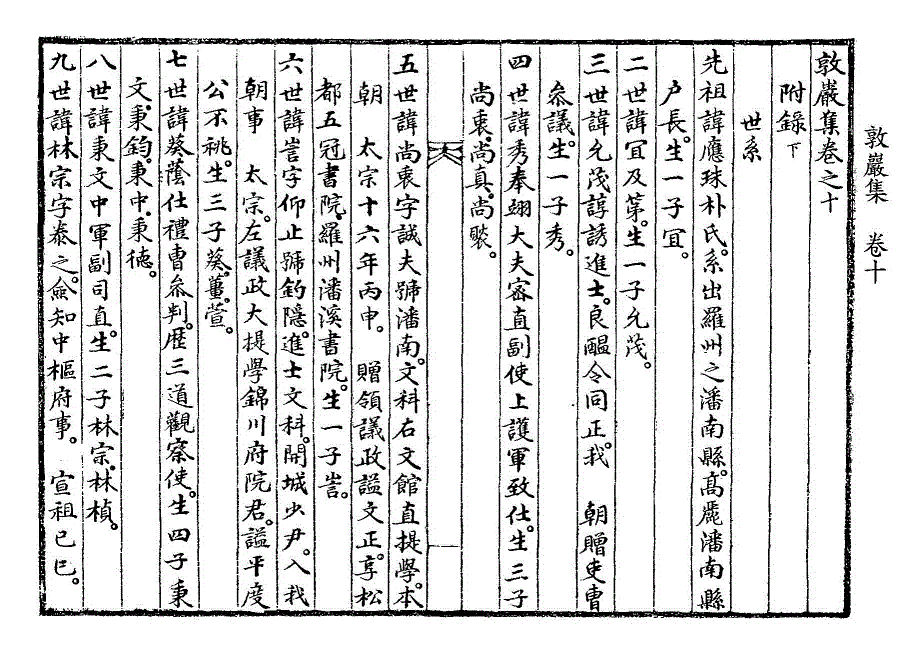 敦巖集 卷十
敦巖集卷之十
附錄下
世系
先祖諱應珠朴氏。系出羅州之潘南縣。高麗潘南縣
户長。生一子宜。
二世諱宜及第。生一子允茂。
三世諱允茂諄誘進士。良醞令同正。我 朝贈吏曹
叅議。生一子秀。
四世諱秀奉翊大夫密直副使上護軍致仕。生三子
尚衷。尚真。尚褧。
五世諱尚衷字誠夫號潘南。文科右文館直提學。本
朝 太宗十六年丙申。 贈領議政謚文正。享松
都五冠書院。羅州潘溪書院。生一子訔。
六世諱訔字仰止號釣隱。進士文科。開城少尹。入我
朝事 太宗。左議政大提學錦川府院君。謚平度
公不祧。生三子葵。薑。萱。
七世諱葵蔭仕禮曹叅判。歷三道觀察使。生四子秉
文。秉鈞。秉中。秉德。
八世諱秉文中軍副司直。生二子林宗。林楨。
九世諱林宗字泰之。僉知中樞府事。 宣祖己巳。